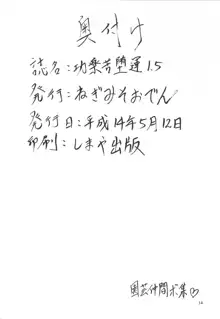 奥付け
誌名：功楽苦堕運1.5
発行：ねぎみそおでん
発行日：平成14年5月12日
印刷：しまや出版
園芸仲間求募♡
34